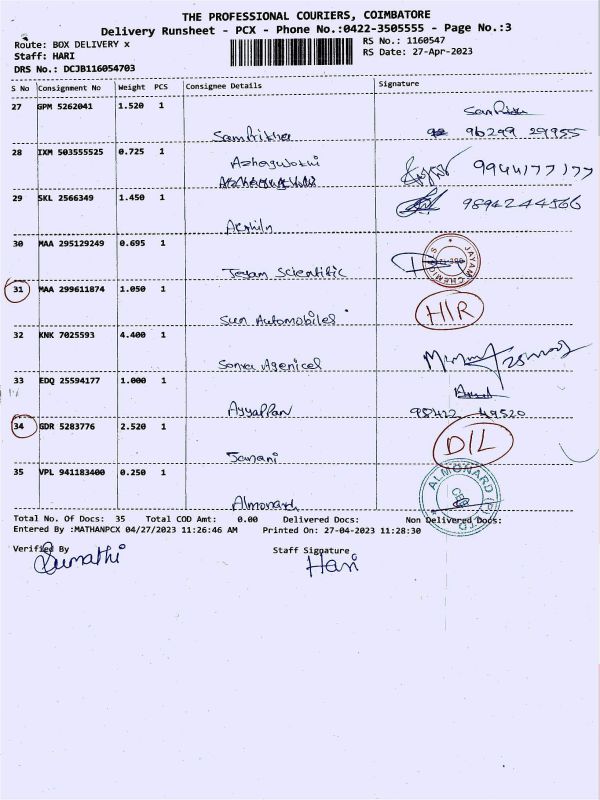 THE PROFESSIONAL COURIERS, COIMBATORE
Delivery Runsheet - PCX - Phone No.:0422-3505555 - Page No.:3
Route: BOX DELIVERY x
RS No.: 1160547
Staff: HARI
RS Date: 27-Apr-2023
DRS No.: DCJB116054703
S No Consignment No Weight PCS Consignee Details Signature
27 GPM 5262041 1.520 1
Samprikha 96299 29955
28 IXM 503555525 0.725 1
9944177177
29 SKL 2566349 1.450 1
9894244566
30 MAA 295129249 0.695 1
Jeyam Scientific JAYAM CHEMICALS
31 MAA 299611874 1.050 1
Sun Automobiles H/R
32 KNK 7025593 4.400 1
33 EDQ 25594177 1.000 1
Ayyappan 98422 49520
34 GDR 5283776 2.520 1
Janani D/L
35 VPL 941183400 0.250 1
Almonard ALMONARD (P) LTD
Total No. Of Docs: 35 Total COD Amt: 0.00 Delivered Docs: Non Delivered Docs:
Entered By :MATHANPCX 04/27/2023 11:26:46 AM Printed On: 27-04-2023 11:28:30
Verified By Staff Signature
Sumathi Hari